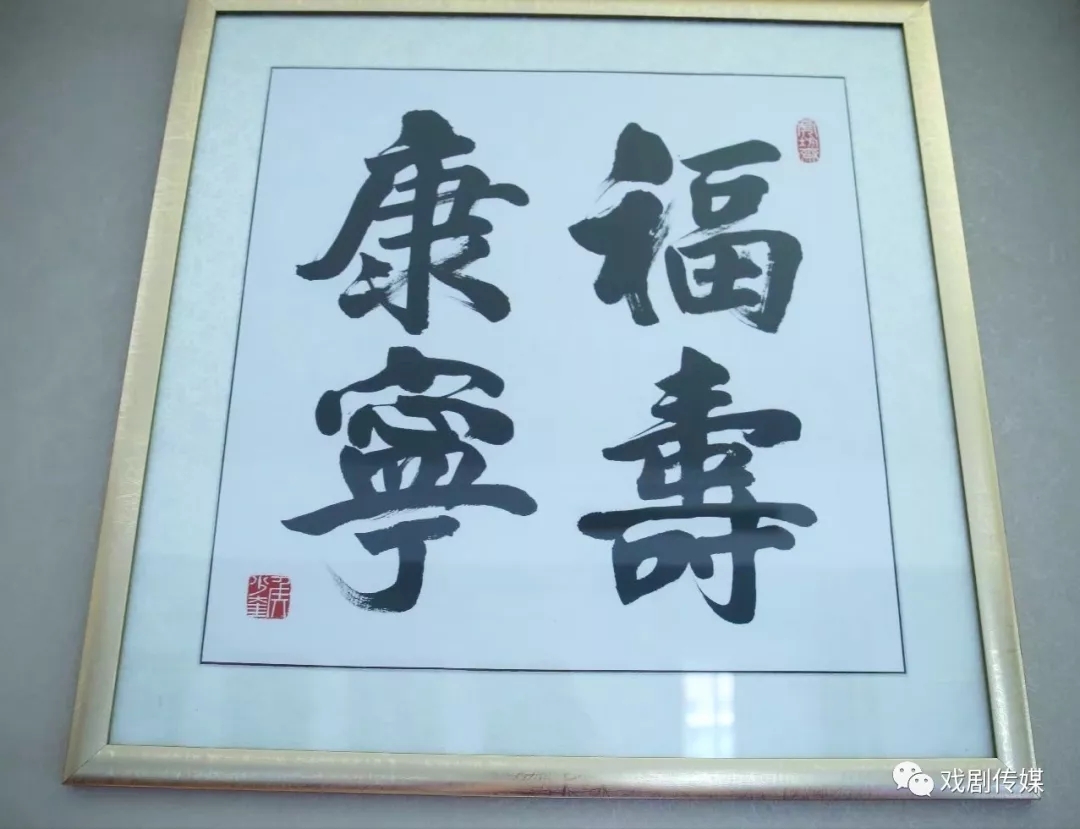 福壽
康寧
戏剧传媒